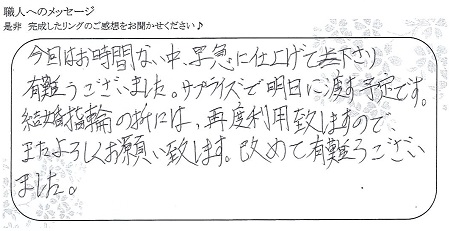 職人へのメッセージ
是非 完成したリングのご感想をお聞かせください♪
今回はお時間ない中、早急に仕上げて下さり
有難うございました。サプライズで明日に渡す予定です。
結婚指輪の折には、再度利用致しますので、
またよろしくお願い致します。改めて有難うござい
ました。